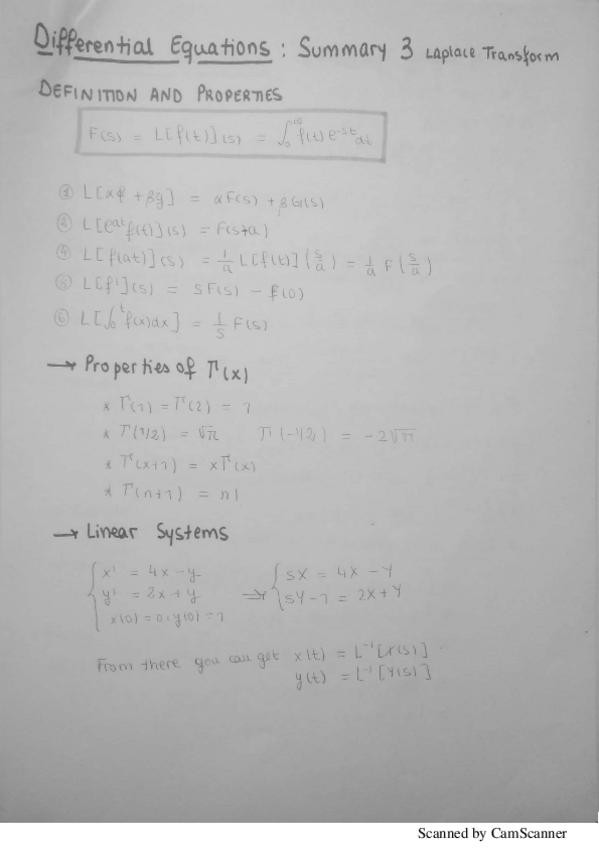 Differential Equations : Summary 3 Laplace Transform
DEFINITION AND PROPERTIES
F(s) = L[f(t)](s) = ∫₀^∞ f(t) e^-st dt
① L[αf + βg] = αF(s) + βG(s)
② L[e^at f(t)](s) = F(s+a)
④ L[f(at)](s) = 1/a L[f(t)](s/a) = 1/a F(s/a)
⑤ L[f'](s) = sF(s) - f(0)
⑥ L[∫₀^t f(x)dx] = 1/s F(s)
→ Properties of Γ(x)
* Γ(1) = Γ(2) = 1
* Γ(1/2) = √π Γ(-1/2) = -2√π
* Γ(x+1) = xΓ(x)
* Γ(n+1) = n!
→ Linear Systems
x' = 4x - y sX = 4X - Y
y' = 2x + y → sY - 1 = 2X + Y
x(0) = 0, y(0) = 1
From there you can get x(t) = L⁻¹[X(s)]
y(t) = L⁻¹[Y(s)]
Scanned by CamScanner